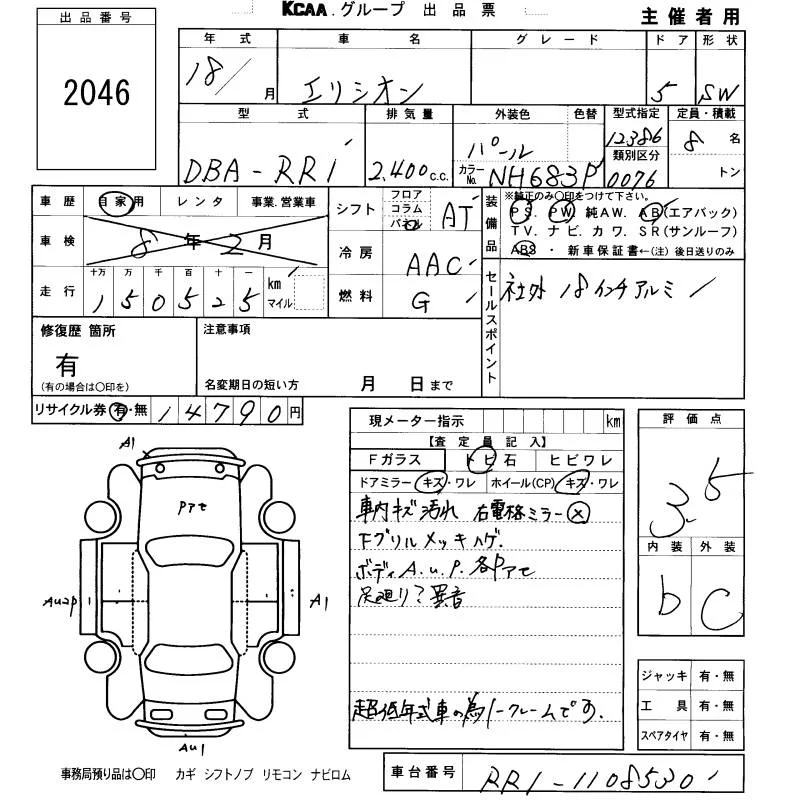 出品番号
2046
KCAA.グループ 出品票
主催者用
年式 車名 グレード ドア 形状
18/ 月 エリシオン 5 SW
型式 排気量 外装色 色替 型式指定 定員・積載
DBA-RR1 2,400 c.c. パール カラーNo. NH683P 12386 類別区分 0076 8 名 トン
車歴 自家用 レンタ 事業.営業車
車検 8年2月
走行 十万 万 千 百 十 一 km マイル
150525
シフト フロア コラム パネル AT
冷房 AAC
燃料 G
装備品 ※純正のみ○印をつけて下さい。
PS. PW. 純AW. AB(エアバック)
TV. ナビ. カワ. SR(サンルーフ)
ABS ・ 新車保証書←(注) 後日送りのみ
セールスポイント
社外 18インチアルミ
修復歴 箇所
有
(有の場合は○印を)
注意事項
名変期日の短い方 月 日まで
リサイクル券 有・無 14790円
現メーター指示 km
【査定員記入】
Fガラス トビ石 ヒビワレ
ドアミラー キズ・ワレ ホイール(CP) キズ・ワレ
車内キズ汚れ 右電格ミラー×
Fグリルメッキハゲ.
ボディA.u.P.各Pアセ
足廻り?異音
超低年式車の為ノークレームです.
評価点
3.5
内装 外装
b C
ジャッキ 有・無
工具 有・無
スペアタイヤ 有・無
A1
Pアセ
Au2P
A1
Au1
事務局預り品は○印 カギ シフトノブ リモコン ナビロム
車台番号 RR1-1108530